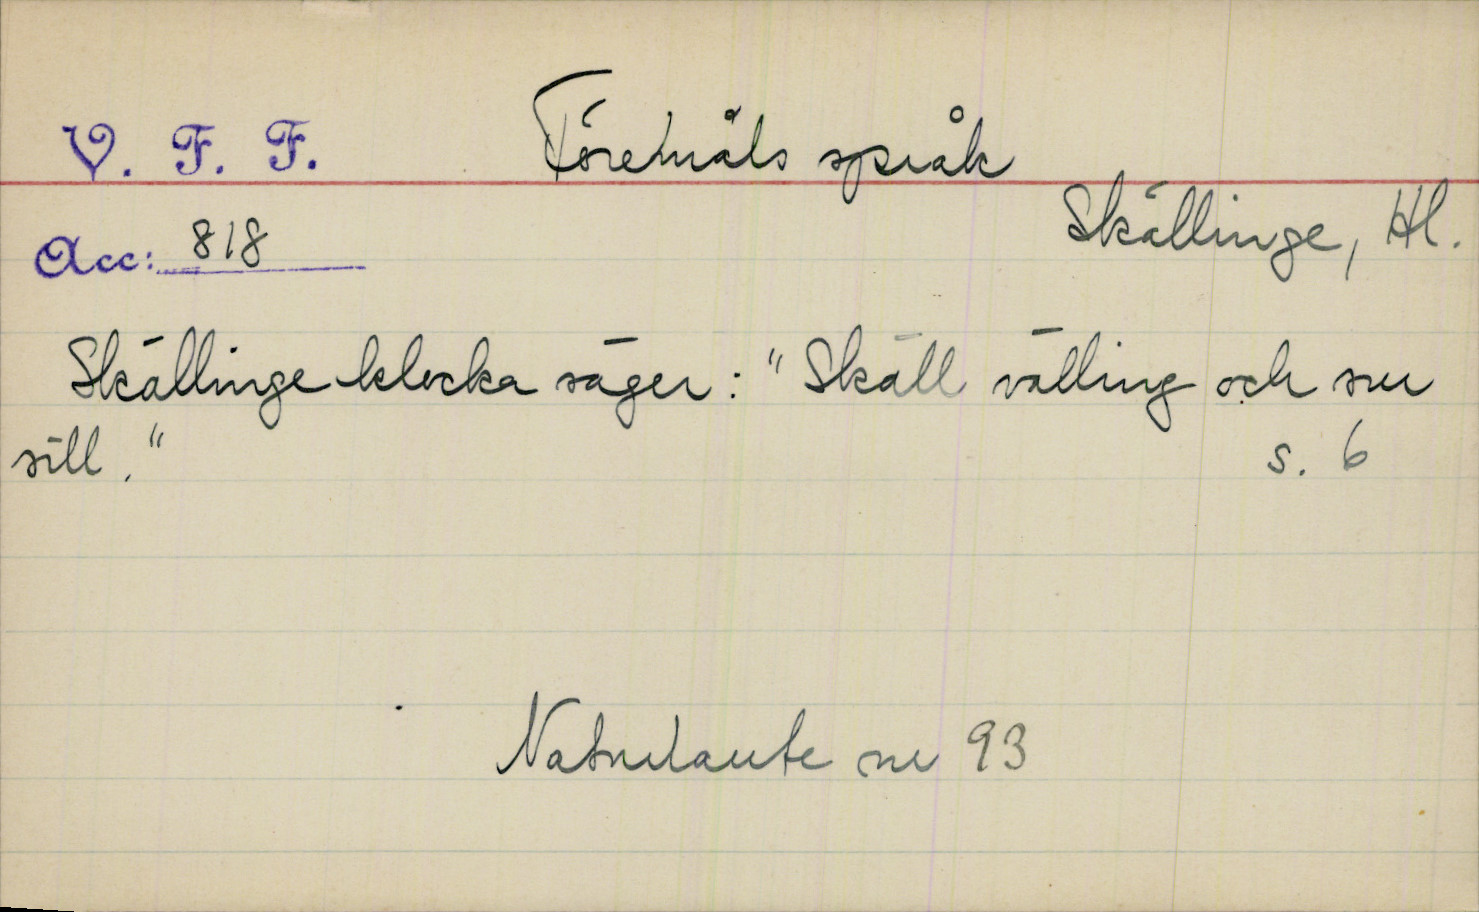 V. F. F.
Föremåls språk
Skällinge, Hl.
Acc: 818
Skällinge klocka säger: "Skäll välling och sur
sill."
s. 6
Naturlaute nr 93